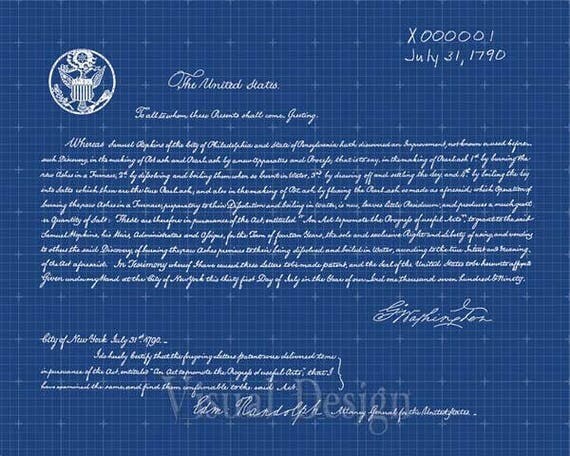 X000001
July 31, 1790
The United States.
To all to whom these Presents shall come, Greeting.
Whereas Samuel Hopkins of the City of Philadelphia and State of Pensylvania hath discovered an Improvement, not known or used before
such Discovery, in the making of Pot ash and Pearl ash by a new Apparatus and Process, that is to say, in the making of Pearl ash 1st by burning the
raw Ashes in a Furnace, 2d by dissolving and boiling them when so burnt in Water, 3rd by drawing off and settling the Ley, and 4th by boiling the Ley
into Salts which then are the true Pearl ash; and also in the making of Pot ash by fluxing the Pearl ash so made as aforesaid; which Operation of
burning the raw Ashes in a Furnace, preparatory to their Dissolution and boiling in Water, is new, leaves little Residuum; and produces a much greater
Quantity of Salt: These are therefore in pursuance of the Act, entitled "An Act to promote the Progress of useful Arts", to grant to the said
Samuel Hopkins, his Heirs, Administrators and Assigns, for the Term of fourteen Years, the sole and exclusive Right and Liberty of using, and vending
to others the said Discovery, of burning the raw Ashes previous to their being dissolved and boiled in Water, according to the true Intent and Meaning
of the Act aforesaid. In Testimony whereof I have caused these Letters to be made patent, and the Seal of the United States to be hereunto affixed
Given under my Hand at the City of New York this thirty first Day of July in the Year of our Lord one thousand seven hundred & Ninety.
G. Washington
City of New York July 31st 1790. –
I do hereby certify that the foregoing Letters patent were delivered to me
in pursuance of the Act, entitled "An Act to promote the Progress of useful Arts", that I
have examined the same, and find them conformable to the said Act.
Edm. Randolph Attorney General for the United States. –
Visual Design